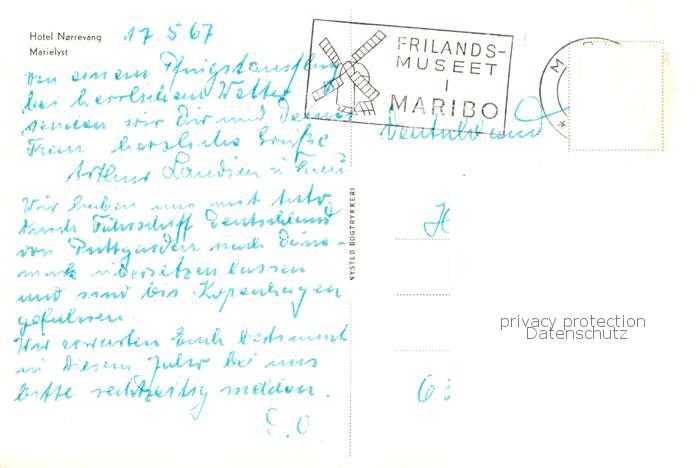 Hotel Nørrevang
Marielyst
17.5.67
Von einem Pfingstausflug
bei herrlichem Wetter
senden wir Dir und Deiner
Frau herzliche Grüße
Arthur u Frau
Wir haben uns mit Auto
durch Fährschiff Deutschland
von Puttgarden nach Däne-
mark übersetzen lassen
und sind bis Kopenhagen
gefahren.
Wir erwarten Euch bestimmt
in diesem Jahr bei uns
bitte rechtzeitig melden.
FRILANDS-
MUSEET
I
MARIBO
M
NYSTED BOGTRYKKERI
H
privacy protection
Datenschutz
6